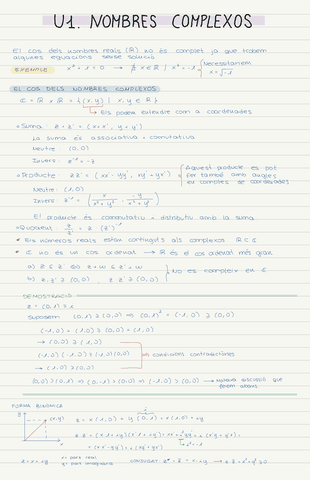 U1. NOMBRES COMPLEXOS
El cos dels nombres reals (ℝ) no és complet ja que trobem
algunes equacions sense solució.
EXEMPLE x² + 1 = 0 → ∄ x ∈ ℝ | x² = -1 Necessitariem
x = √-1
EL COS DELS NOMBRES COMPLEXOS
ℂ = ℝ × ℝ = {(x, y) | x, y ∈ ℝ}
→ Els podem entendre com a coordenades
• Suma: z + z' = (x + x', y + y')
La suma és associativa i commutativa
Neutre: (0,0)
Invers: z⁻¹ = -z
• Producte: z z' = (xx' - yy', xy' + yx') Aquest producte es pot
fer també amb angles
en comptes de coordenades
Neutre: (1,0)
Invers: z⁻¹ = (x / x² + y², -y / x² + y²)
El producte és commutatiu i distributiu amb la suma
• Quocient: z / z' = z (z')⁻¹
• Els nombres reals estan continguts als complexos ℝ ⊂ ℂ
• ℂ no és un cos ordenat → ℝ és el cos ordenat més gran
a) z ≤ z' ⇔ z + w ≤ z' + w
b) z, z' ≥ (0,0), z z' ≥ (0,0)
No es compleix en ℂ
DEMOSTRACIÓ
suposem (0,1) ≥ (0,0) ⇒ (0,1)² = (-1,0) ≥ (0,0)
(-1,0) + (1,0) ≥ (0,0) + (1,0)
→ (0,0) ≥ (1,0)
(-1,0) (-1,0) ≥ (-1,0) (0,0)
→ (1,0) ≥ (0,0)
condicions contradictòries
FORMA BINÒMICA
(x,y)
z = x + iy
x = part real
y = part imaginària